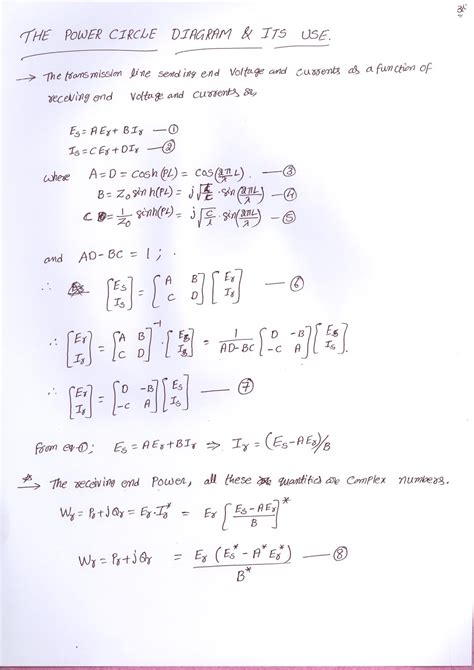 THE POWER CIRCLE DIAGRAM & ITS USE.
→ The transmission line sending end voltage and currents as a function of
receiving end voltage and currents are,
Es = AEr + BIr —①
Is = CEr + DIr —②
where A = D = cosh(PL) = cos(2π/λ L). —③
B = Z₀ sinh(PL) = j√(L/C) · sin(2πL/λ) —④
C = 1/Z₀ sinh(PL) = j√(C/L) · sin(2πL/λ) —⑤
and AD-BC = 1 ;
∴ [Es Is] = [A B C D] [Er Ir] —⑥
∴ [Er Ir] = [A B C D]⁻¹ · [Es Is] = 1/(AD-BC) [D -B -C A] [Es Is].
∴ [Er Ir] = [D -B -C A] [Es Is] —⑦
From eq-①; Es = AEr + BIr ⇒ Ir = (Es-AEr)/B
→ The receiving end Power, all these quantities are complex numbers.
Wr = Pr + jQr = Er·Ir* = Er [(Es-AEr)/B]*
Wr = Pr + jQr = Er (Es* - A* Er*) / B* —⑧